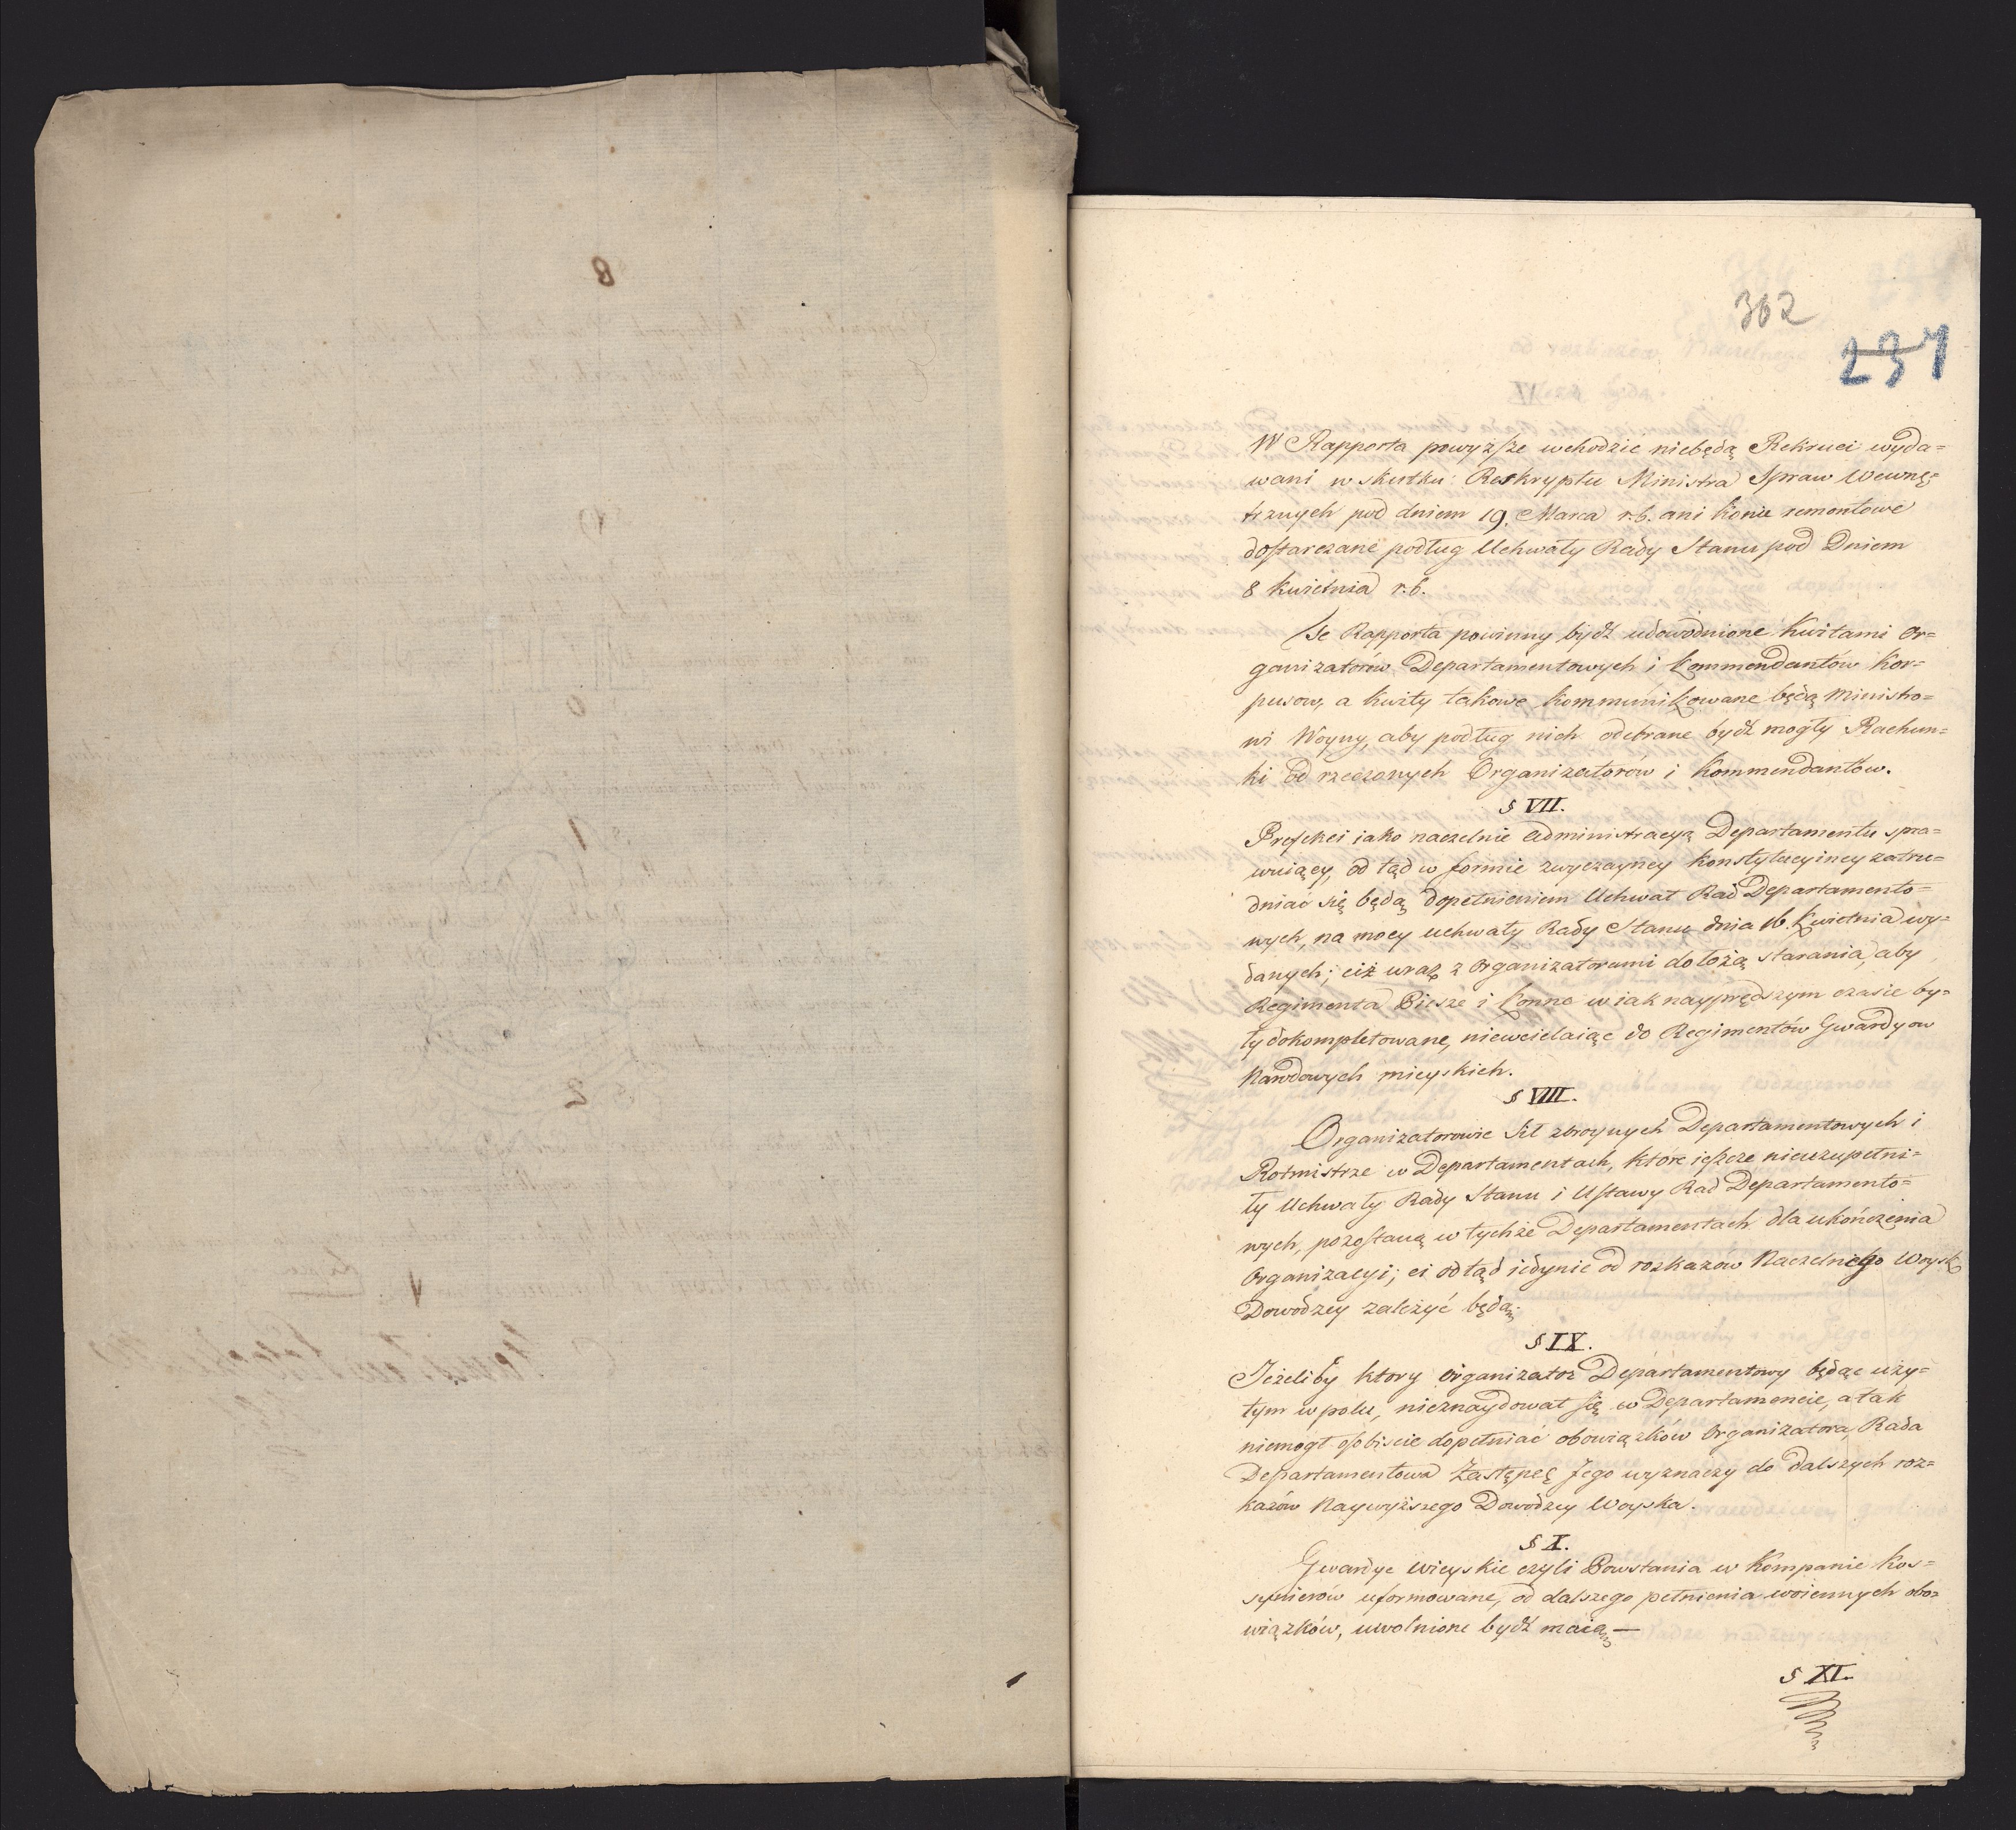 362
237
W Rapporta powyższe wchodzić niebędą Rekruci wyda=
wani w skutku Reskryptu Ministra Spraw Wewnę=
trznych pod dniem 19. Marca r.b. ani Konie remontowe
dostarczane podług Uchwały Rady Stanu pod Dniem
8 Kwietnia r.b.
Te Rapporta powinny bydź udowodnione Kwitami Or=
ganizatorów Departamentowych i Kommendantów Kor=
pusow, a kwity takowe kommunikowane będą Ministro=
wi Woyny, aby podług nich odebrane bydź mogły Rachun=
ki od rzeczonych Organizatorów i Kommendantów.
§ VII.
Prefekci iako naczelnie administracyą Departamentu spra=
wuiący, od tąd w formie zwyczayney konstytucyiney zatru=
dniać się będą dopełnieniem Uchwał Rad Departamento=
wych, na mocy uchwały Rady Stanu dnia 16. Kwietnia wy=
danych; ciż wraz z Organizatorami dołożą starania, aby
Regimenta Piesze i Konne w iak nayprędszym czasie by=
ły dokompletowane, niewcielaiąc do Regimentów Gwardyow
Narodowych mieyskich.
§ VIII.
Organizatorowie Sił zbroynych Departamentowych i
Rotmistrze w Departamentach, ktore ieszcze nieuzupełni=
ły Uchwały Rady Stanu i Ustawy Rad Departamento=
wych, pozostaną w tychże Departamentach dla ukończenia
Organizacyi; ci odtąd iedynie od rozkazów Naczelnego Woysk
Dowódzcy zależyć będą.
§ IX.
Jeżeliby ktory Organizator Departamentowy będąc uży=
tym w polu, nieznaydował się w Departamencie, a tak
niemogł osobiście dopełniać obowiązków Organizatora, Rada
Departamentowa Zastępcę Jego wyznaczy do dalszych roz=
kazów Naywyższego Dowodzcy Woyska.
§ X.
Gwardye Wieyskie czyli Powstania w Kompanie Kos=
synierów uformowane, od dalszego pełnienia woiennych obo=
wiązków, uwolnione bydź maią —
§ XI.